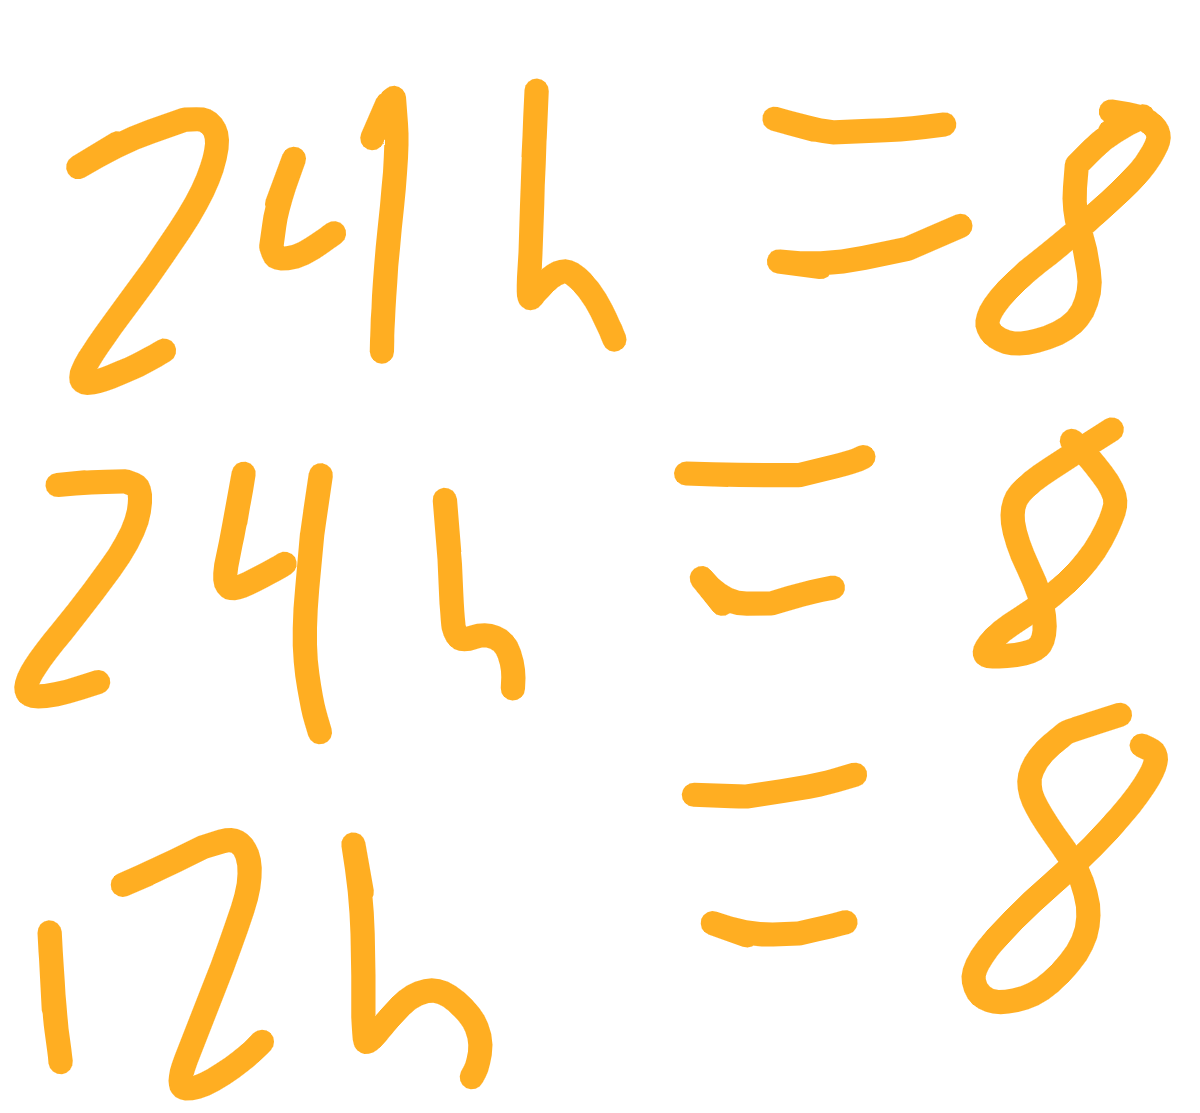 24h = 8
24h = 8
12h = 8